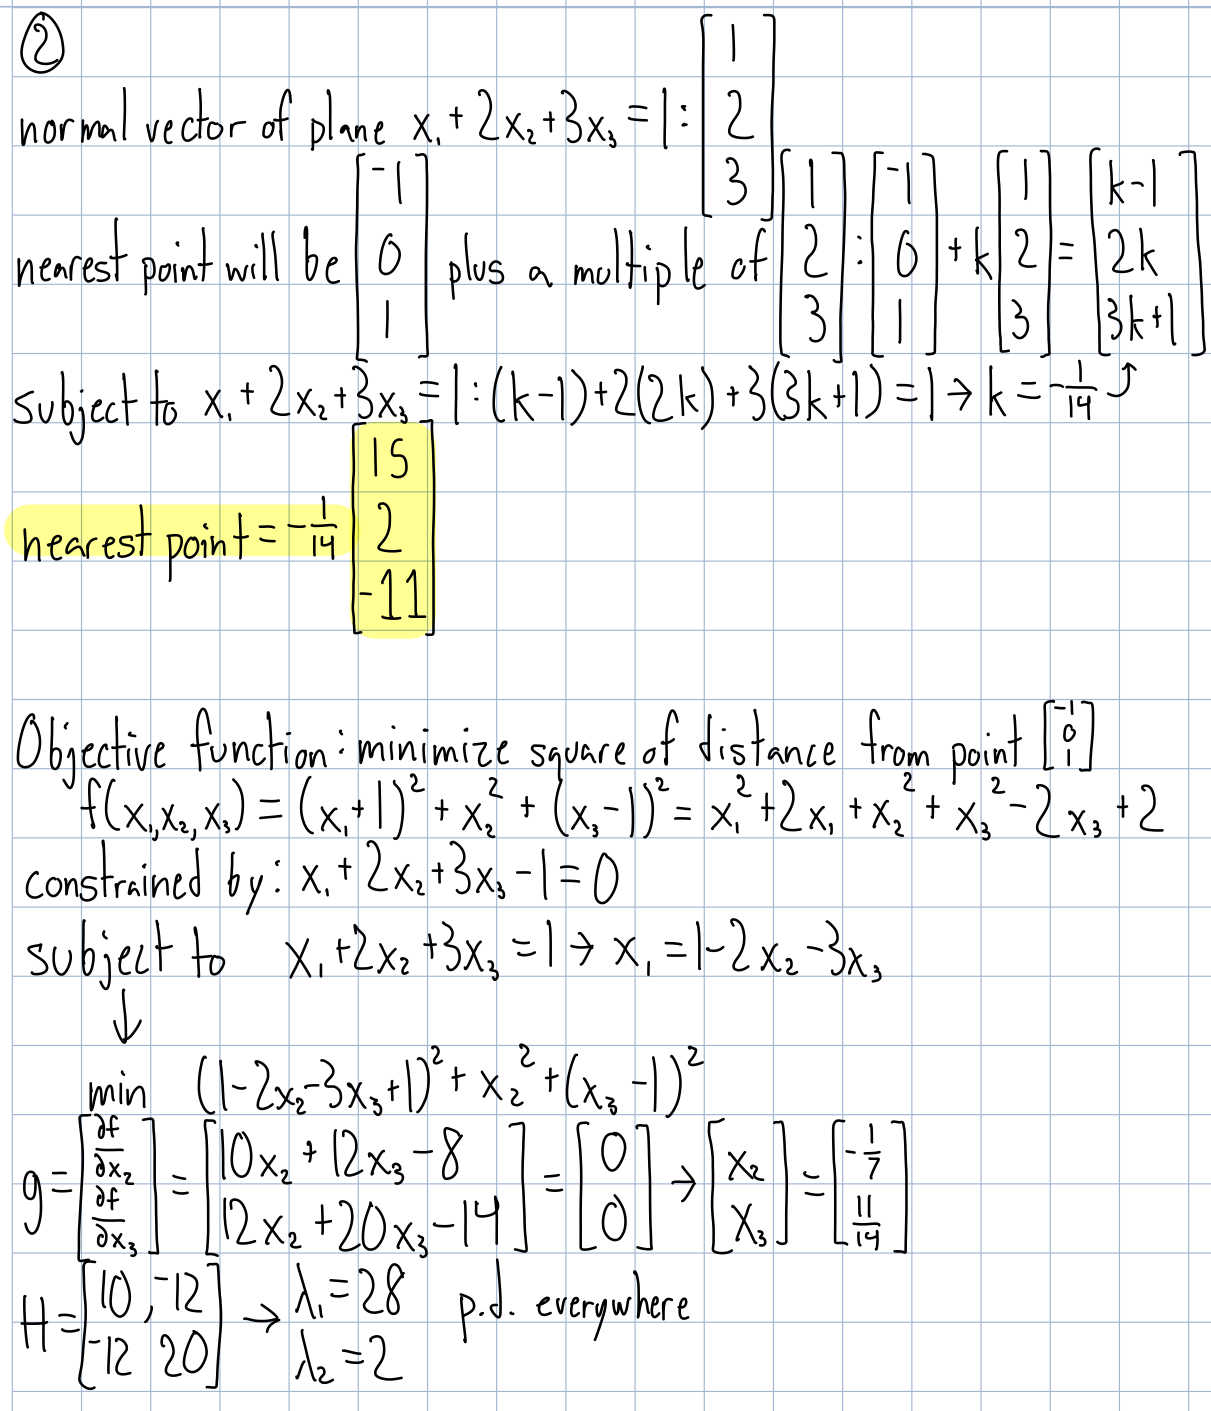 ②
normal vector of plane x₁ + 2x₂ + 3x₃ = 1 : [1; 2; 3]
nearest point will be [-1; 0; 1] plus a multiple of [1; 2; 3] : [-1; 0; 1] + k [1; 2; 3] = [k-1; 2k; 3k+1]
subject to x₁ + 2x₂ + 3x₃ = 1 : (k-1) + 2(2k) + 3(3k+1) = 1 → k = -1/14 ⤴
nearest point = -1/14 [15; 2; -11]
Objective function : minimize square of distance from point [-1; 0; 1]
f(x₁, x₂, x₃) = (x₁+1)² + x₂² + (x₃-1)² = x₁² + 2x₁ + x₂² + x₃² - 2x₃ + 2
constrained by : x₁ + 2x₂ + 3x₃ - 1 = 0
subject to x₁ + 2x₂ + 3x₃ = 1 → x₁ = 1-2x₂-3x₃
↓
min (1-2x₂-3x₃+1)² + x₂² + (x₃-1)²
g = [∂f/∂x₂; ∂f/∂x₃] = [10x₂ + 12x₃ - 8; 12x₂ + 20x₃ - 14] = [0; 0] → [x₂; x₃] = [-1/7; 11/14]
H = [10, -12; -12 20] → λ₁ = 28 λ₂ = 2 p.d. everywhere